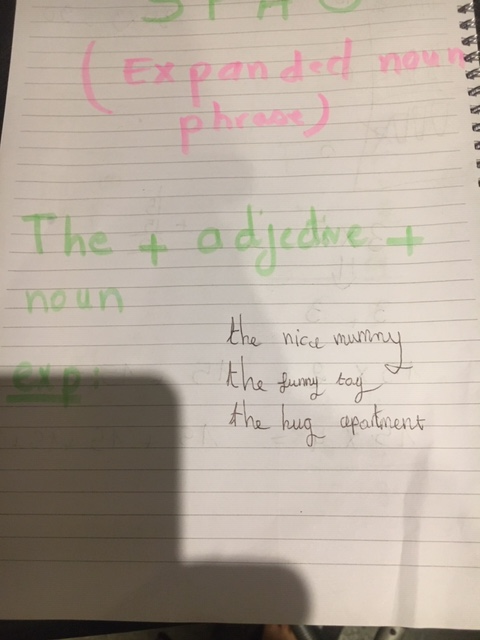 (Expanded noun
phrase)
The + adjective +
noun
the nice mummy
exp:
the funny toy
the hug apartment